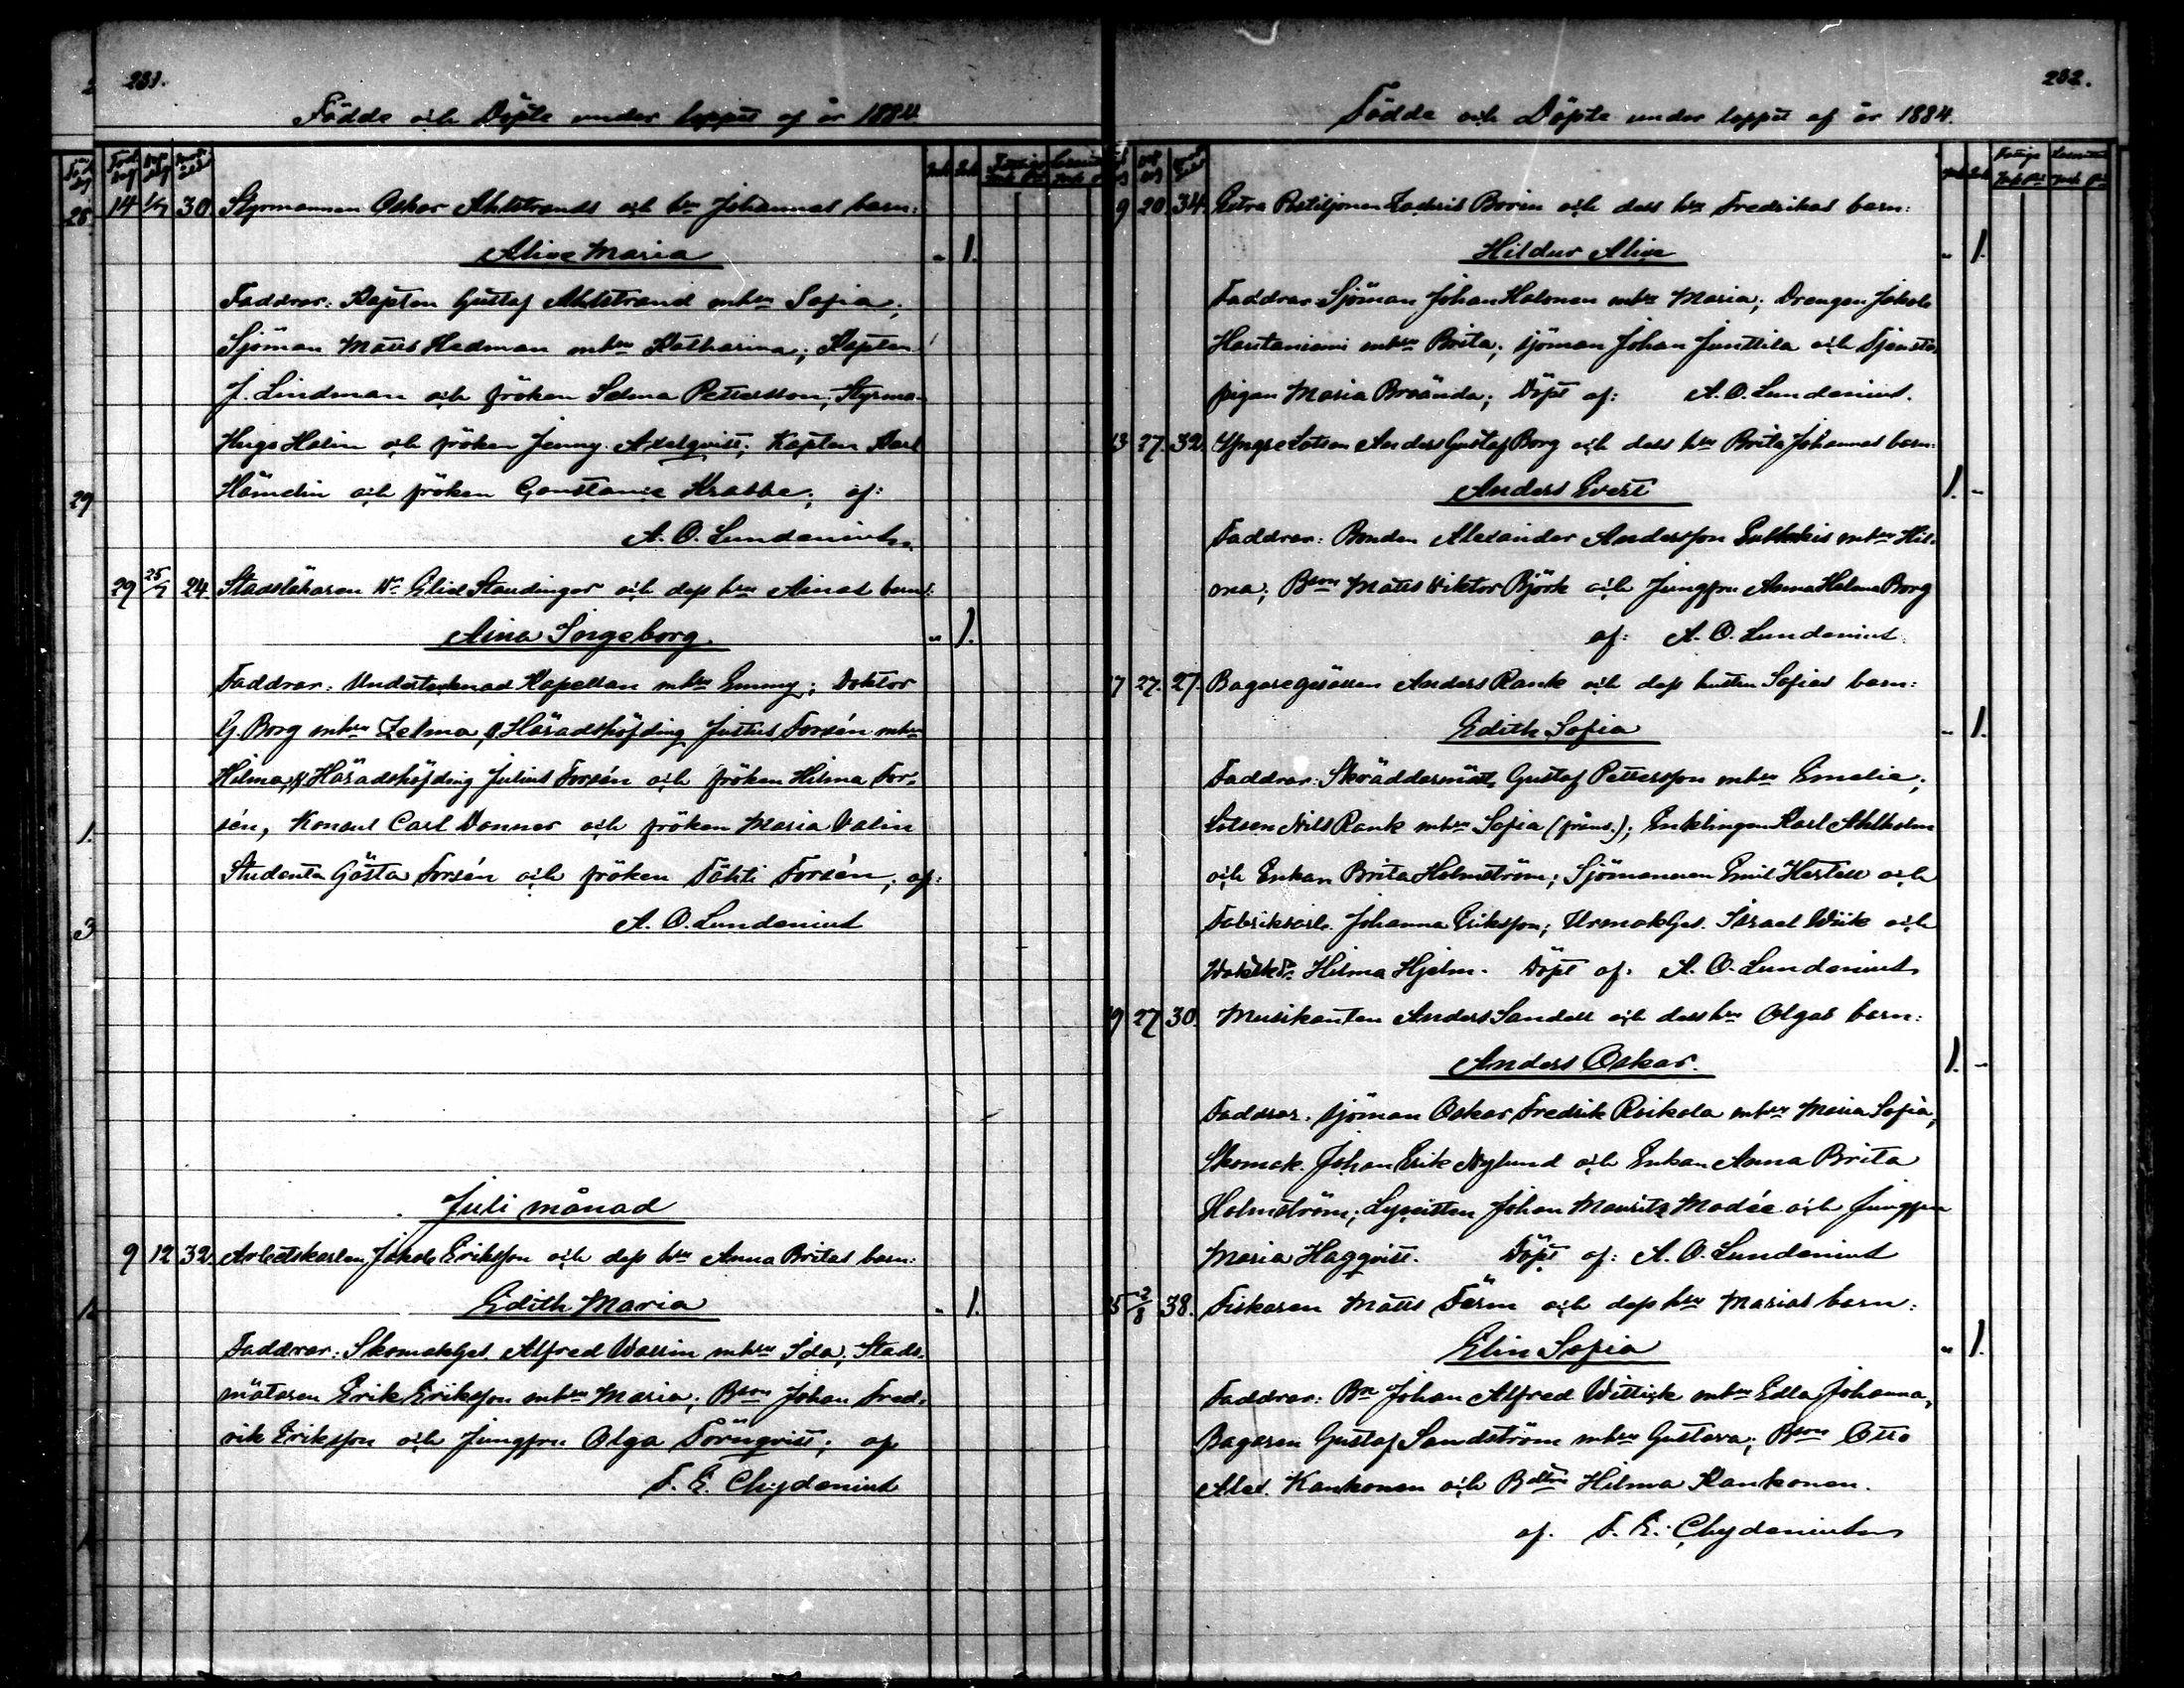 231.
Födde och Döpte under loppet af år 1884.
14 30 Styrmannen Oskar Ahlstrands och hu Johannas barn:
Alice Maria " 1.
Faddrar: Kapten Gustaf Ahlstrand m hu Sofia;
Sjöman Matts Hedman m hu Katharina; Kapten
J. Lindman och fröken Selma Pettersson; Styrma-
Hugo Holm och fröken Jenny Axelqvist; Kapten Karl
och fröken Constance Krabbe; af:
A. O. Lundenius
29 25/7 24. Stadsläkaren Dr Elis Staudinger och dess hu Ainas barn:
Aina Ingeborg. " 1.
Faddrar: Undertecknad Kapellan m hu Emmy; Doktor
G. Borg m hu Zelma, Häradshöfding Justus Forsén m hu
Hilma, Häradshöfding Julius Forsén och fröken Hilma For-
sén, Konsul Carl Donner och fröken Maria Valin
Studenten Gösta Forsén och fröken Tähti Forsén; af:
A. O. Lundenius
Juli månad
9 12 32. Arbetskarlen Jakob Eriksson och dess hu Anna Britas barn:
Edith Maria " 1.
Faddrar: SkomakGes. Alfred Wallin m hu Ida; Stads-
mätaren Erik Eriksson m hu Maria; Bson Johan Fred-
rik Eriksson och Jungfru Olga Törnqvist; af
F. E. Chydenius
232.
Födde och Döpte under loppet af år 1884.
9 20 34. Extra Postiljonen Zachris Borin och dess hu Fredrikas barn:
Hildur Alice " 1.
Faddrar: Sjöman Johan Halonen m hu Maria; Drengen Jakob
Hautaniemi m hu Brita; Sjöman Johan Junttila och Tjenste-
pigan Maria Broända; Döpt af: A. O. Lundenius.
13 27. 32. Yngre Lotsen Anders Gustaf Borg och dess hu Brita Johannas barn:
Anders Evert 1. "
Faddrar: Bonden Alexander Andersson m hu Hil-
ma; Bson Matts Viktor Björk och Jungfru Anna Helena Borg
af: A. O. Lundenius
17 27. 27. Bagaregesällen Anders Rank och dess hustru Sofias barn:
Edith Sofia " 1.
Faddrar: Skräddermäst. Gustaf Pettersson m hu Emelie;
Lotsen Nils Rank m hu Sofia (frånv.); Enklingen Karl Ahlholm
och Enkan Brita Holmström; Sjömannen Emil Hertell och
Fabriksarb. Johanna Eriksson; UrmakGes. Israel Wiik och
Hilma Hjelm. Döpt af: A. O. Lundenius
19 27 30. Musikanten Anders Sandell och dess hu Olgas barn:
Anders Oskar. 1. "
Faddrar: Sjöman Oskar Fredrik Roikola m hu Maria Sofia;
Skomak. Johan Erik Nylund och Enkan Anna Brita
Holmström; Lyceisten Johan Mauritz Modée och Jungfru
Maria Hagqvist. Döpt af: A. O. Lundenius
2/8 38. Fiskaren Matts Färm och dess hu Marias barn:
Elin Sofia " 1.
Faddrar: Bn Johan Alfred Wittick m hu Edla Johanna;
Bagaren Gustaf Sandström m hu Gustava; Bson Otto
Alex. Kankonen och Bdtrn Hilma Kankonen.
af. F. E. Chydenius